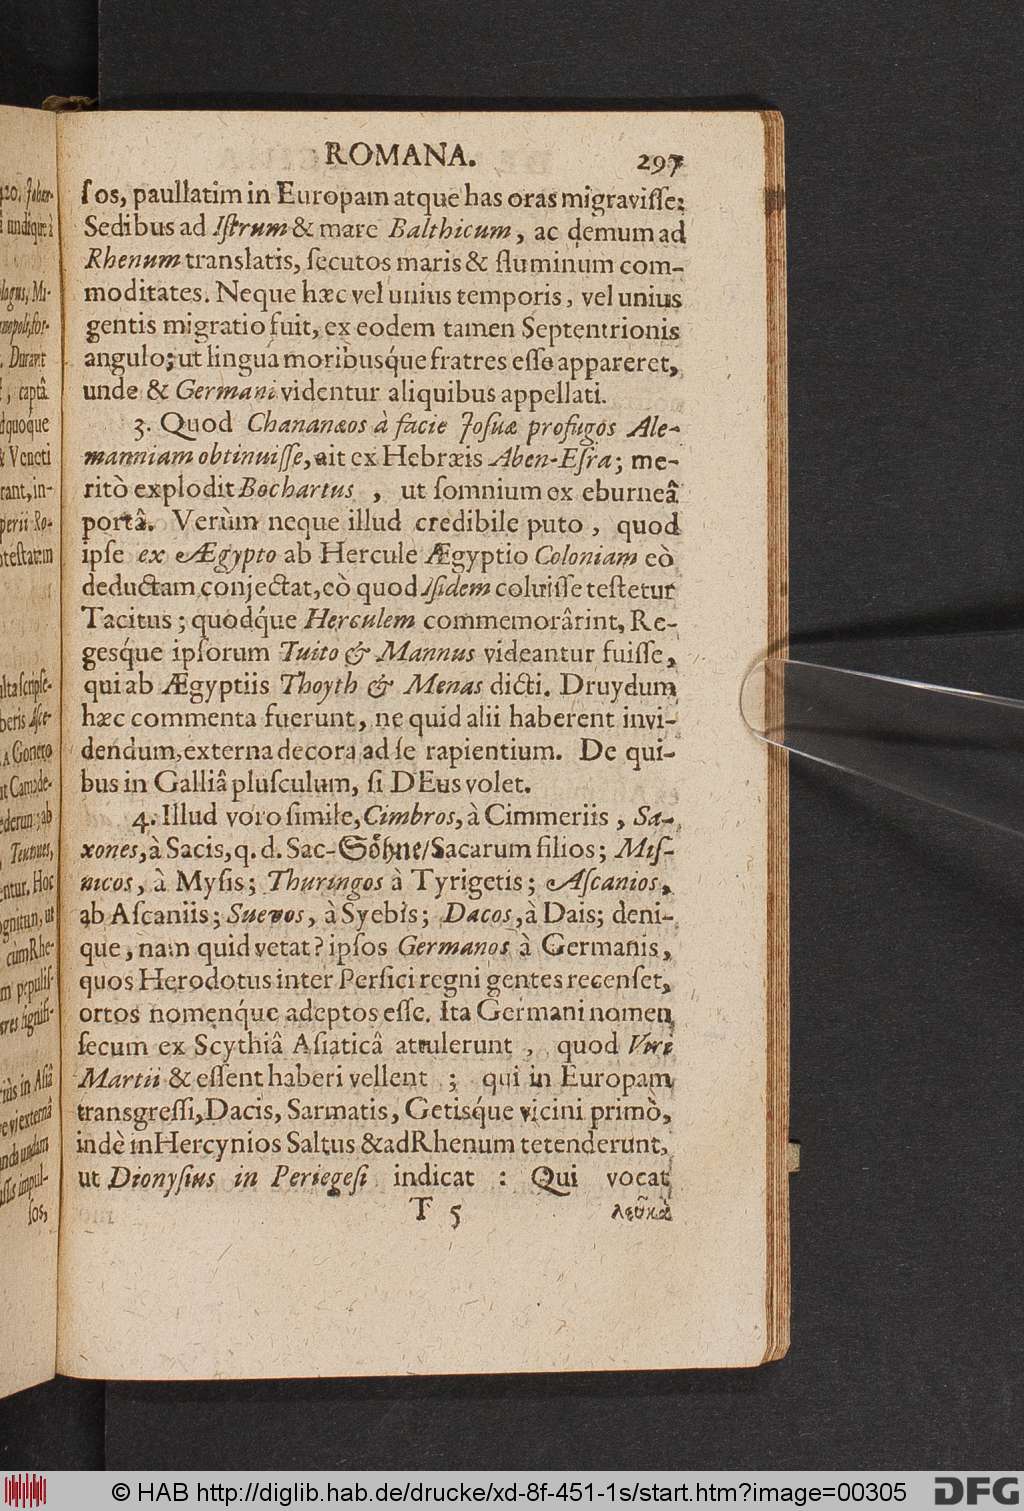 ROMANA. 297
ſos, paullatim in Europam atque has oras migraviſſe:
Sedibus ad Iſtrum & mare Balthicum, ac demum ad
Rhenum translatis, ſecutos maris & fluminum com-
moditates. Neque hæc vel unius temporis, vel unius
gentis migratio fuit, ex eodem tamen Septentrionis
angulo; ut linguâ moribusq́ue fratres eſſe appareret,
unde & Germani videntur aliquibus appellati.
3. Quod Chananæos à facie Joſuæ profugos Ale-
manniam obtinuiſſe, ait ex Hebræis Aben-Eſra; me-
ritò explodit Bochartus, ut ſomnium ex eburneâ
portâ. Verùm neque illud credibile puto, quod
ipſe ex Ægypto ab Hercule Ægyptio Coloniam eò
deductam conjectat, eò quod Iſidem coluiſſe teſtetur
Tacitus; quodq́ue Herculem commemorârint, Re-
gesq́ue ipſorum Tuito & Mannus videantur fuiſſe,
qui ab Ægyptiis Thoyth & Menas dicti. Druydum
hæc commenta fuerunt, ne quid alii haberent invi-
dendum, externa decora ad ſe rapientium. De qui-
bus in Galliâ pluſculum, ſi DEus volet.
4. Illud vero ſimile, Cimbros, à Cimmeriis, Sa-
xones, à Sacis, q. d. Sac-Söhne/Sacarum filios; Miſ-
nicos, à Myſis; Thuringos à Tyrigetis; Aſcanios,
ab Aſcaniis; Suevos, à Syebis; Dacos, à Dais; deni-
que, nam quid vetat? ipſos Germanos à Germanis,
quos Herodotus inter Perſici regni gentes recenſet,
ortos nomenq́ue adeptos eſſe. Ita Germani nomen
ſecum ex Scythiâ Aſiaticâ attulerunt, quod Viri
Martii & eſſent haberi vellent; qui in Europam
transgreſſi, Dacis, Sarmatis, Getisq́ue vicini primò,
indè in Hercynios Saltus & ad Rhenum tetenderunt,
ut Dionyſius in Periegeſi indicat: Qui vocat
T 5 λευκὰ
© HAB http://diglib.hab.de/drucke/xd-8f-451-1s/start.htm?image=00305
DFG